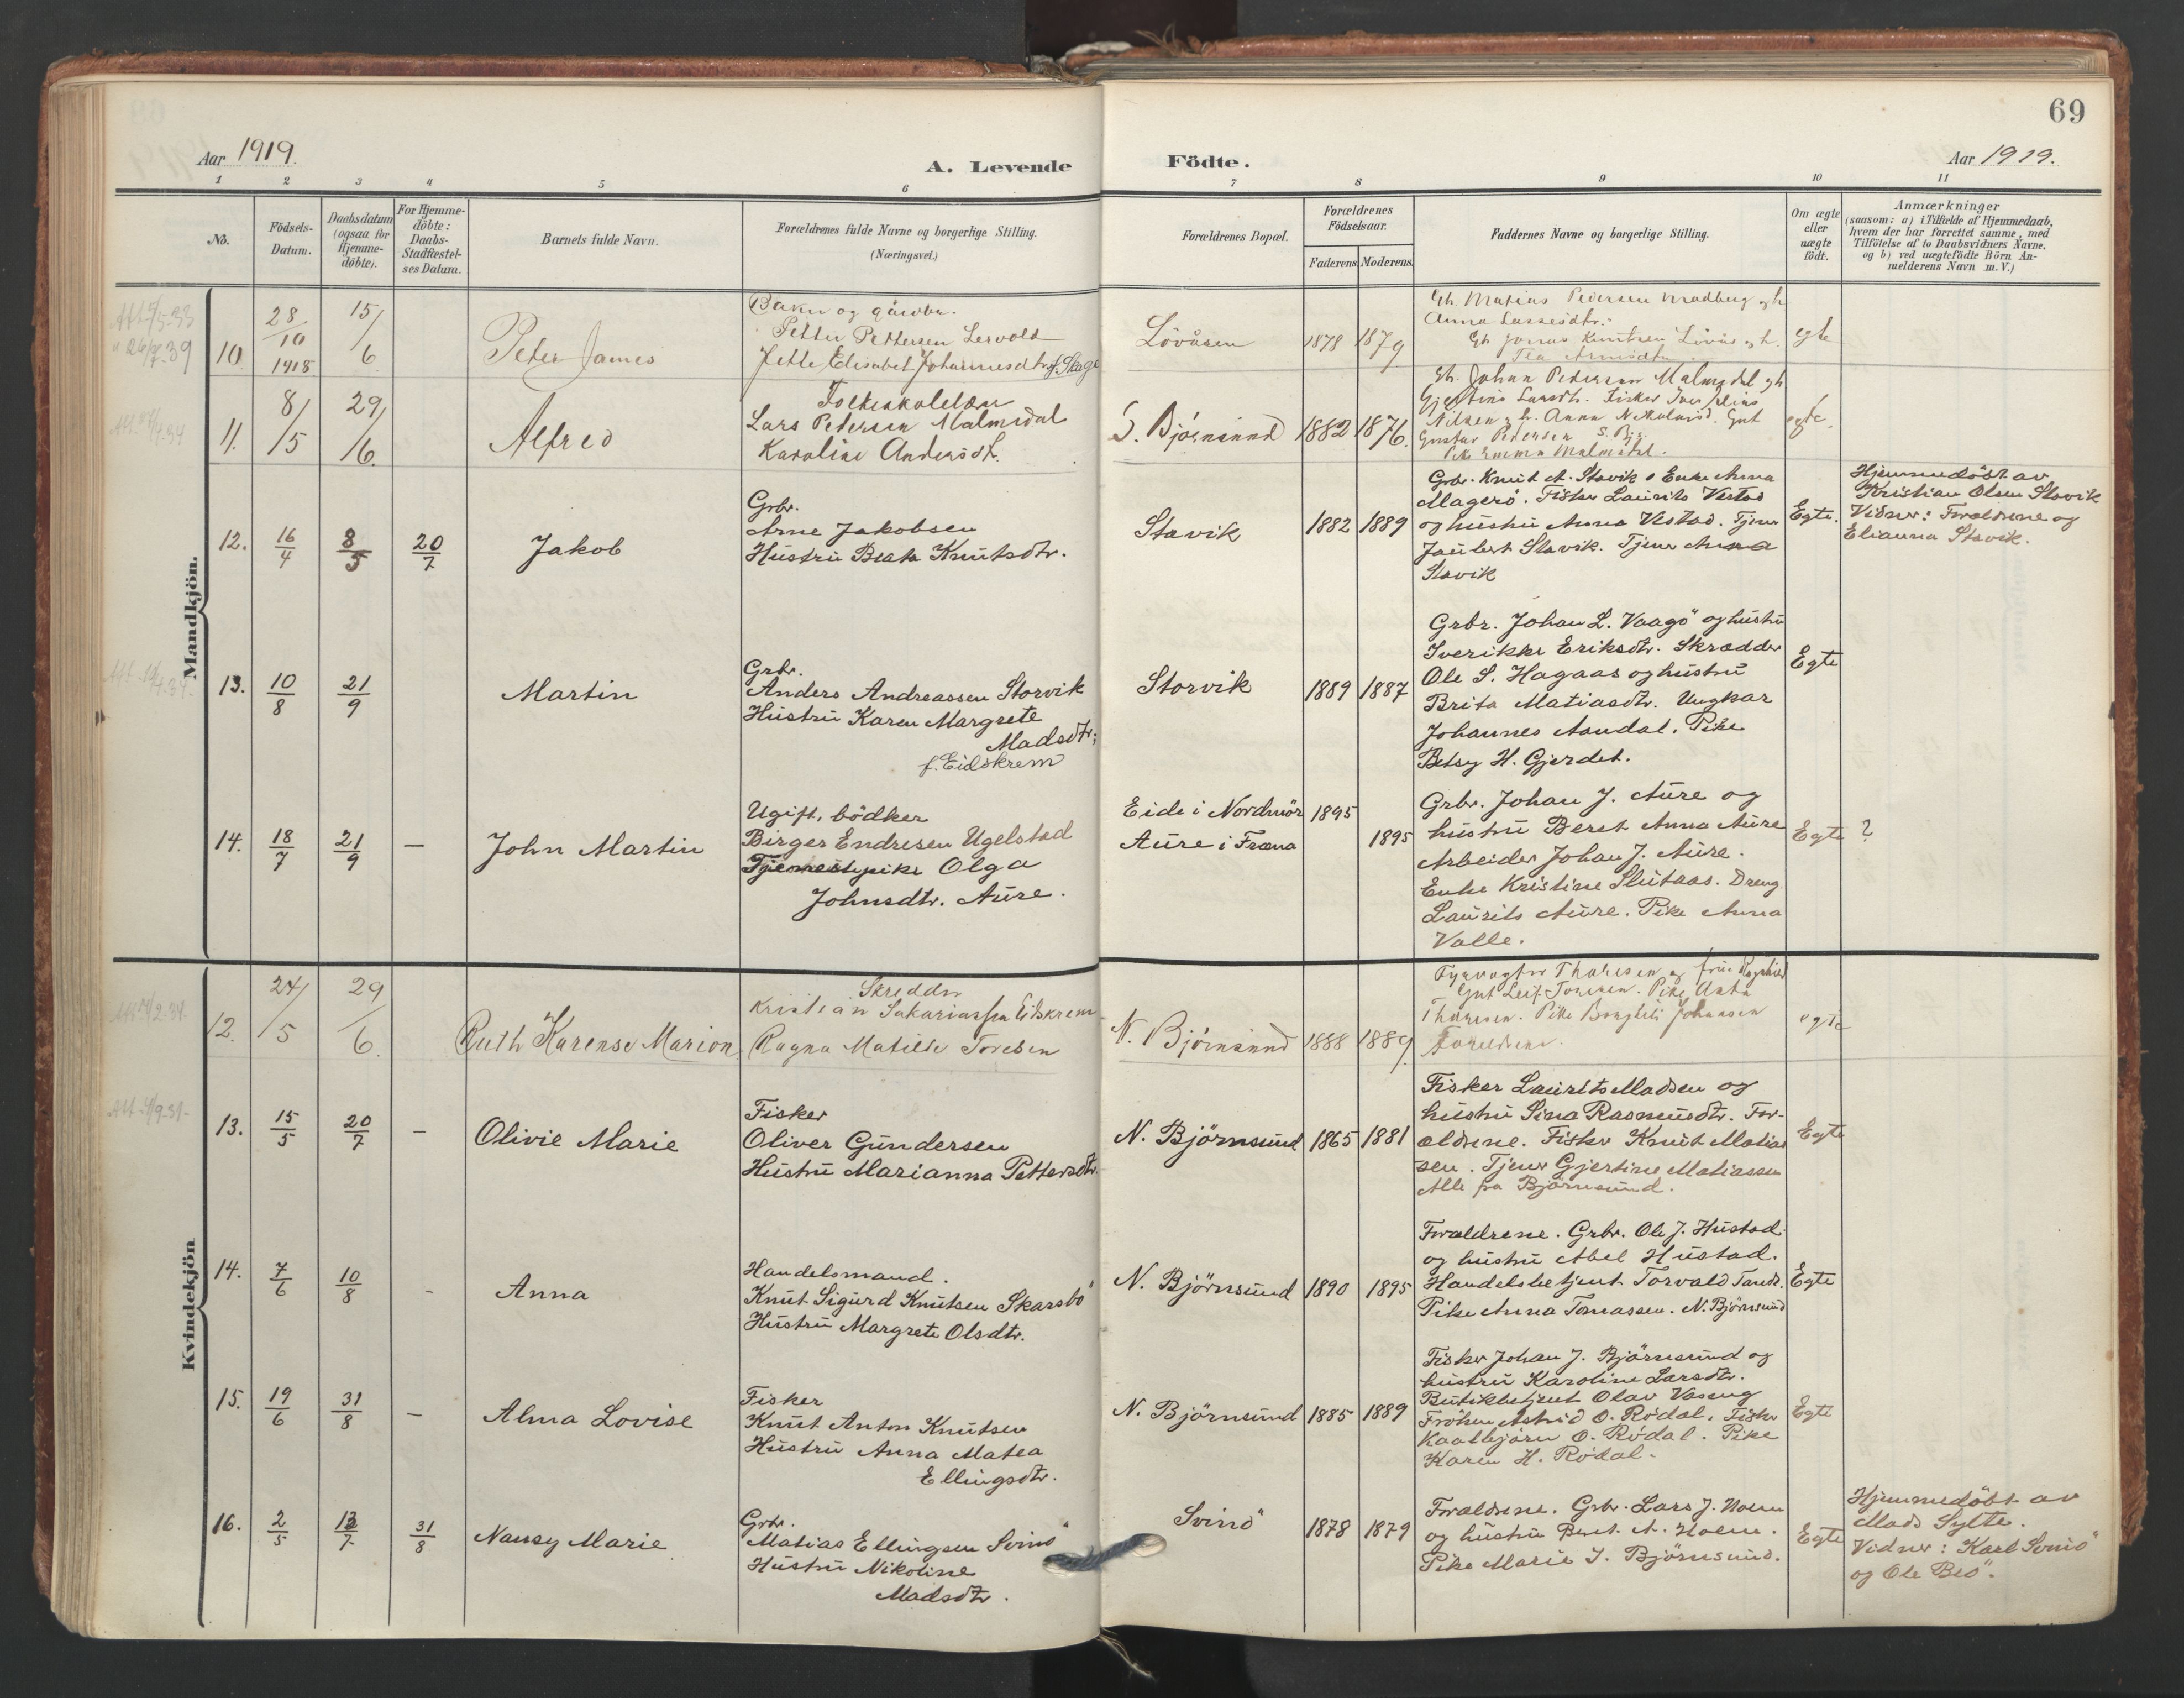 69
Aar 1919.
A. Levende Födte.
Aar 1919.
1 2 3 4 5 6 7 8 9 10 11
No.
Födsels-
Datum.
Daabsdatum
(ogsaa for
Hjemme-
döbte).
For Hjemme-
döbte:
Daabs-
Stadfæstel-
ses Datum.
Barnets fulde Navn.
Forældrenes fulde Navne og borgerlige Stilling.
(Næringsvei.)
Forældrenes Bopæl.
Forældrenes
Födselsaar.
Faderens. Moderens.
Faddernes Navne og borgerlige Stilling.
Om ægte
eller
uægte
födt.
Anmærkninger
(saasom: a) i Tilfælde af Hjemmedaab,
hvem der har forrettet samme, med
Tilföielse af to Daabsvidners Navne.
og b) ved uægtefödte Börn An-
melderens Navn m. V.)
Mandkjön.
10
28/10
1918
15/6
Peter James
Petter Pettersen Lervold
Jette Elisabet Johannesdtr f. Skage
Lövåsen
1878 1879
Gh. Matias Pedersen
Anna Lassesdtr.
egte
11.
8/5
29/6.
Alfred
Lars Petersen Malmedal
Karoline Andersdt.
S. Björnsund
1882 1876.
Gh. Johan Pedersen Malmedal gh
Nilsen Anna Gut
Gustav Pedersen S. Bj.
Pike Emma Malmedal.
egte.
12.
16/4
8/5
20/7
Jakob
Grbr.
Arne Jakobsen
Hustru Beata Knutsdtr.
Stavik
1882 1889
Grbr. Knut A. Stavik o Enke Anna
Magerö. Fisker Laurits Vestad
og hustru Anna Vestad. Tjener
Stavik. Tjener Anna
Stavik
Egte.
Hjemmedöbt av
Kristian Olsen Stavik
Vidner: Forældrene og
Elianna Stavik.
13.
10/8
21/9
Martin
Grbr.
Anders Andreassen Storvik
Hustru Karen Margrete
Madsdtr;
f. Eidskrem
Storvik
1889 1887
Grbr. Johan L. Vaagö og hustru
Iverikke Eriksdtr. Skrædder
Ole S. Hagaas og hustru
Brita Matiasdtr. Ungkar
Johannes Aandal. Pike
Betsy H. Gjerdet.
Egte
14.
18/7
21/9
—
John Martin
Ugift, bödker
Birger Endresen Ugelstad
Tjenestepike Olga
Johnsdtr. Aure.
Eide i Nordmör
Aure i Fræna
1895
1895
Grbr. Johan J. Aure og
hustru Beret Anna Aure
Arbeider Johan J. Aure.
Enke Kristine Slutaas. Dreng
Laurits Aure. Pike Anna
Valle.
Egte ?
Kvindekjön
12.
24/5
29/6.
Ruth Karense Marion
Skredder
Kristian Sakariassen Eidskrem
Ragna Matilde Toresen
N. Björnsund
1888 1889
Fyrvogter Thoresen og frue Ragnhild
Gut Leif Toresen. Pike Asta
Thoresen. Pike Johansen
Foreldrene.
egte
13.
15/5
20/7
—
Olivie Marie
Fisker
Oliver Gundersen
Hustru Marianna Pettersdtr.
N. Björnsund
1865 1881
Fisker Laurits Madsen og
hustru Sina Rasmusdtr. For-
ældrene. Fisker Knut Matias
sen. Tjener Gjertine Matiassen
Alle fra Björnsund.
Egte
14.
7/6
10/8
-
Anna
Handelsmand.
Knut Sigurd Knutsen Skarsbö
Hustru Margrete Olsdtr.
N. Björnsund
1890 1895
Forældrene. Grbr. Ole J. Hustad
og hustru Abel Hustad.
Handelsbetjent Torvald Tande.
Pike Anna Tomassen. N. Björnsund
Egte
15.
19/6
31/8
—
Alma Lovise
Fisker
Knut Anton Knutsen
Hustru Anna Matea
Ellingsdtr.
N. Björnsund
1885 1889
Fisker Johan J. Björnsund og
hustru Karoline Larsdtr.
Butikbetjent Olav Vaseng
Fröken Astrid O. Rödal. Fisker
Kaalbjörn O. Rödal. Pike
Karen H. Rödal.
Egte
16.
2/5
13/7
31/8
Nansy Marie
Grbr.
Matias Ellingsen Svinö
Hustru Nikoline
Madsdtr.
Svinö
1878 1879
Forældrene. Grbr. Lars J. Noem
og hustru Beret A. Noem.
Pike Marie J. Björnsund.
Egte
Hjemmedöbt av
Mads Sylte.
Vidner: Karl Svinö
og Ole Beö.